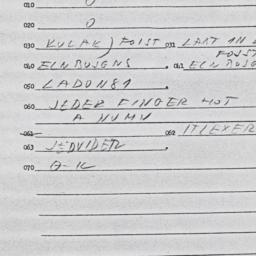 010 0
020 0
030 KULAK) FOIST 031 LAKT AN
FOIST
040 ELNBUSGNS . 041 ELN BUSG
050 LADONGA .
060 JEDER FINGER HOT
A NUMU
061 062 ITLEXER
063 JEDVIDER .
070 A-K